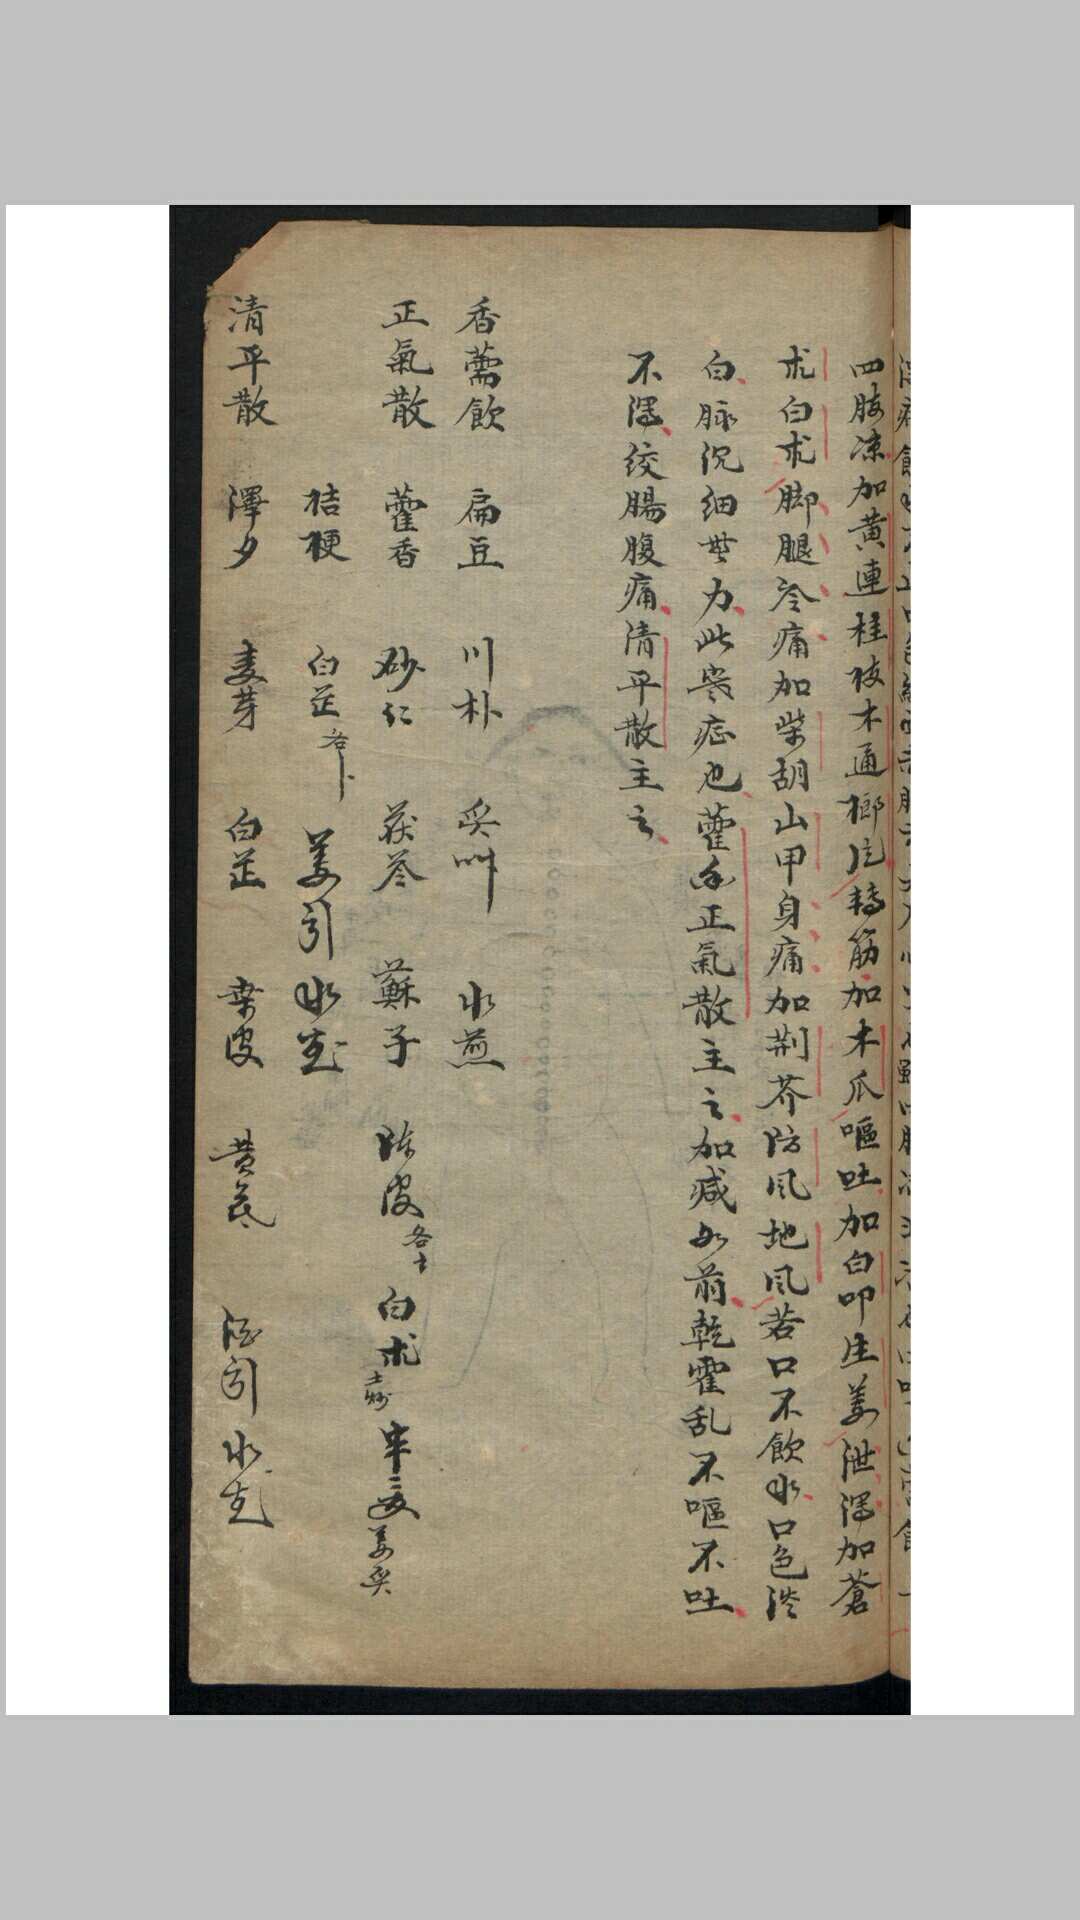 四肢凉加黄連桂枝木通榔片轉筋加木瓜嘔吐加白叩生姜泄瀉加蒼
朮白朮脚腿冷痛加柴胡山甲身痛加荆芥防风地风若口不飲水口色淡
白脉沉细無力此寒症也藿香正氣散主之加减如前乾霍乱不嘔不吐
不瀉绞腸腹痛清平散主之
香薷飲 扁豆 川朴 炙艸 水煎
正氣散 藿香 砂仁 茯苓 蘇子 陈皮各 白朮土炒 半夏姜炙
桔梗 白芷各 姜引 水煎
清平散 澤夕 麦芽 白芷 桑皮 黄芪 酒引 水煎